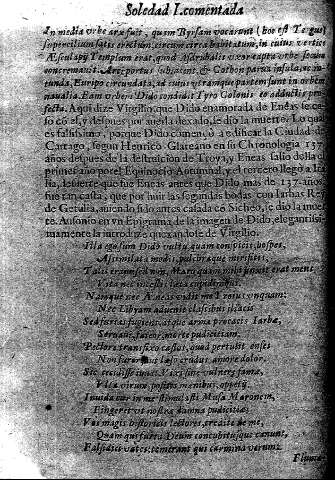 Soledad I. comentada
In media vrbe arx fuit, quam Byrsam vocarunt (hoc est Tergus)
supercilium satis erectum, circum circa habitatum, in cuius vertice
Æsculapij Templum erat, quod Asdrubalis vxor capta vrbe secum
concremauit. Arci portus subiacent, & Cothon parua insula, rotunda,
Euripo circundata, ad cuius vtramque partem sunt in orbem
naualia. Eam vrbem Dido condidit Tyro Colonis eo adductis profecta.
Aqui dize Virgilio, que Dido enamorada de Eneas se caso
cõ el, y despues por auerla dexado, le dio la muerte. Lo qual
es falsissimo, porque Dido començò a edificar la Ciudad de
Cartago, segun Henrico Glareano en su Chronologia 137.
años despues de la destruicion de Troya, y Eneas salio della el
primer año por el Equinocio Autumnal, y el tercero llegò a Italia,
de suerte que fue Eneas antes que Dido mas de 137. años
fue tan casta, que por huir las segundas bodas con Iarbas Rey
de Getulia, auiendo sido antes casada de Sicheo, se dio la muerte.
Ausonio en vn Epigrama de la imagen de Dido, elegantissimamente
la introduze quexandose de Virgilio.
Illa ego sum Dido vultu, quam conspicis, hospes,
Assimilata modis, pulchraque mirificis.
Talis eram, sed non, Maro quam mihi finxit erat mens
Vita nec incestis læta cupidinibus.
Namque nec Æneas vidit me Troius vnquam:
Nec Libyam aduenit classibus Iliacis
Sed furias fugiens, atque arma procacis Iarbæ,
Seruaui, fateor, morte pudicitiam.
Pectore transfixo castus, quod pertulit enses
Non furor, aut læso crudus amore dolor.
Sic cecidisse iuuat. Vixi sine vulnere famæ,
Vlta virum, positis mœnibus, oppetij.
Inuida cur in me stimulasti Musa Maronem,
Fingeret vt nostræ damna pudicitiæ?
Vos magis historicis lectores, credite de me,
Quam qui furta Deum concubitusque canunt,
Falsidici vates: temerant qui carmine verum: